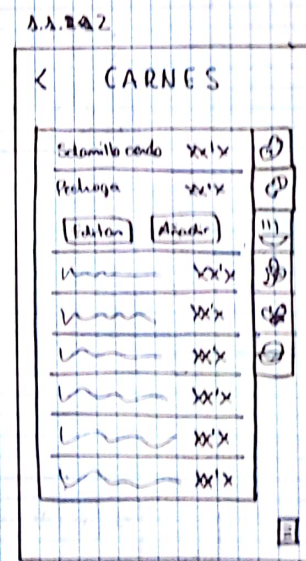 < CARNES
Solomillo cerdo xx'x
Pechuga xx'x
Editar Añadir
xx'x
xx'x
xx'x
xx'x
xx'x
xx'x